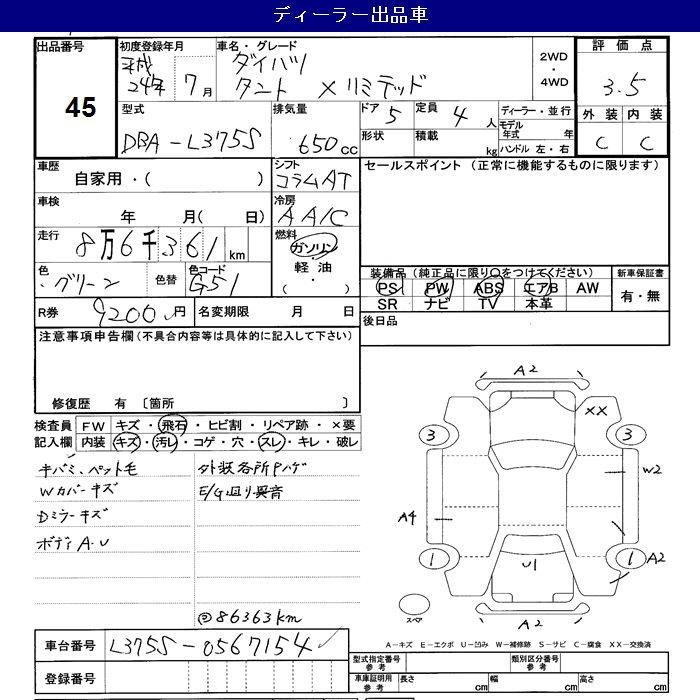 ディーラー出品車
出品番号
45
初度登録年月
平成
24年 7月
車名・グレード
ダイハツ
タント Xリミテッド
2WD
・
4WD
評価点
3.5
外装 内装
C C
型式
DBA-L375S
排気量
650cc
ドア 5
形状
定員 4人
積載 kg
ディーラー・並行
モデル年式 年
ハンドル 左・右
車歴
自家用・( )
シフト
コラムAT
セールスポイント (正常に機能するものに限ります)
車検
年 月( 日)
冷房
AA/C
走行
8万6千361km
燃料
ガソリン
・
軽油
・
( )
色
グリーン
色替
色コード
G51
装備品(純正品に限り○をつけてください)
PS PW ABS エアB AW
SR ナビ TV 本革
新車保証書
有・無
R券 9200円
名変期限 月 日
後日品
注意事項申告欄(不具合内容等は具体的に記入して下さい)
修復歴 有 〔箇所 〕
検査員
記入欄
FW キズ・飛石・ヒビ割・リペア跡・×要
内装 キズ・汚レ・コゲ・穴・スレ・キレ・破レ
キバミ、ペット毛
Wカバーキズ
Dミラーキズ
ボディA.U
外装各所Pハゲ
E/G廻り異音
86363km
A2
XX
3 3
W2
A4
1 1 A2
U1
スペア
A2
A-キズ E-エクボ U-凹み W-補修跡 S-サビ C-腐食 XX-交換済
車台番号 L375S-0567154
登録番号
型式指定番号
参考
類別区分番号
参考
車庫証明用
参考
長さ cm
幅 cm
高さ cm